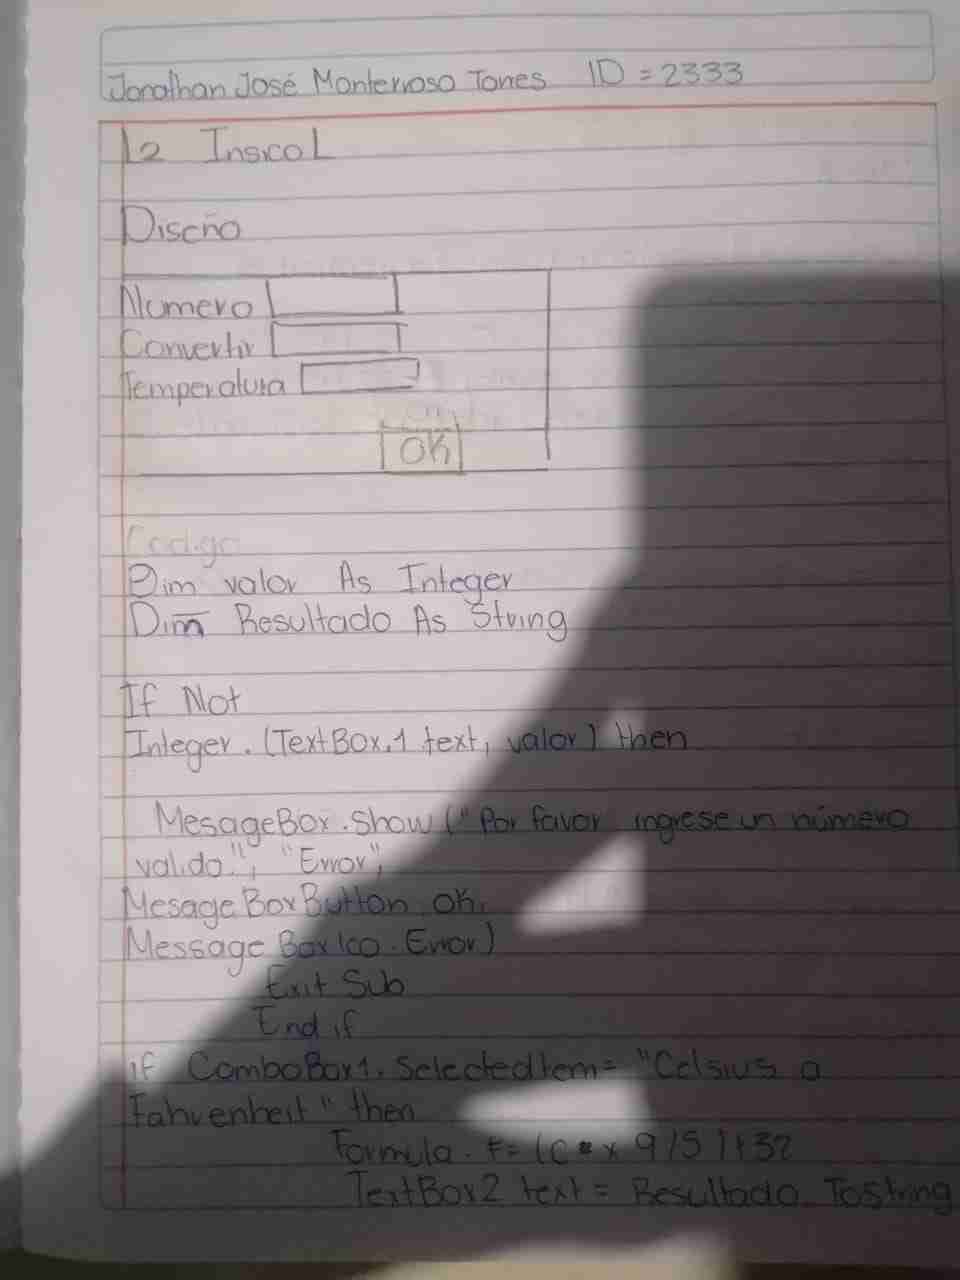 Jonathan José Monterroso Torres ID = 2333
L2 InsicoL
Diseño
Numero
Convertir
Temperatura
OK
Codigo
Dim valor As Integer
Dim Resultado As String
If Not
Integer. (TextBox.1 text, valor) then
MesageBox.Show ("Por favor ingrese un número
valido.", "Error",
MesageBoxButton. OK,
MessageBoxIco. Error)
Exit Sub
End if
if ComboBox1. SelectedItem= "Celsius a
Fahrenheit" then
Formula. F= (C x 9/5)+32
TextBox2 text = Resultado. ToString